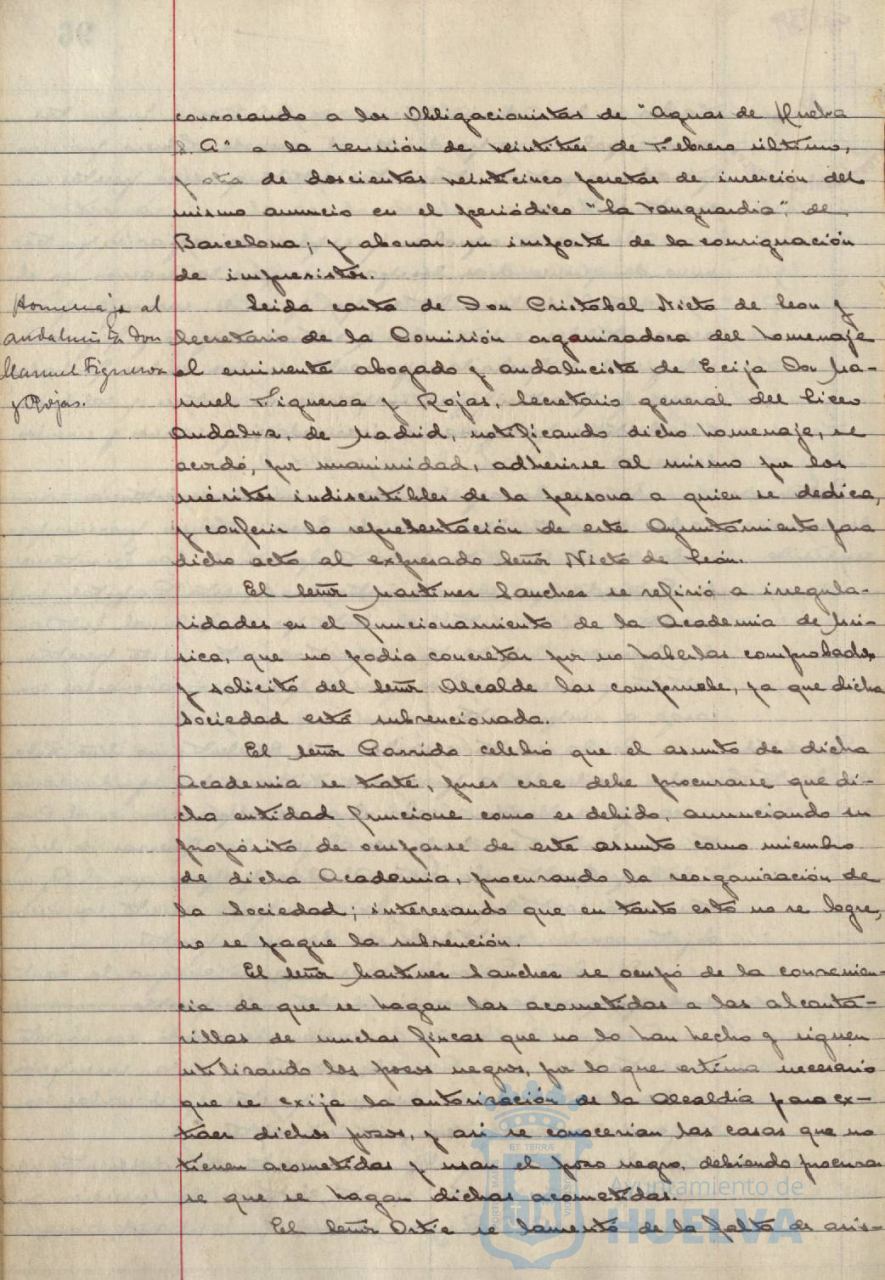 convocando a los Obligacionistas de "Aguas de Huelva
S. A" a la reunión de veintitres de Febrero último,
y otra de doscientas veinticinco pesetas de inserción del
mismo anuncio en el periódico "La Vanguardia", de
Barcelona; y abonar su importe de la consignación
de imprevistos.
Homenaje al
andalucista Don
Manuel Figueroa
y Rojas.
Leida carta de Don Cristóbal Nieto de León y
Secretario de la Comisión organizadora del homenaje
al eminente abogado y andalucista de Ecija Don Ma-
nuel Figueroa y Rojas, Secretario general del Liceo
Andaluz, de Madrid, notificando dicho homenaje, se
acordó, por unanimidad, adherirse al mismo por los
méritos indiscutibles de la persona a quien se dedica,
y conferir la representación de este Ayuntamiento para
dicho acto al expresado Señor Nieto de León.
El Señor Martinez Sanchez se refirió a irregula-
ridades en el funcionamiento de la Academia de Mú-
sica, que no podia concretar por no haberlas comprobado,
y solicitó del Señor Alcalde las compruebe, ya que dicha
Sociedad está subvencionada.
El Señor Garrido celebró que el asunto de dicha
Academia se trate, pues cree debe procurarse que di-
cha entidad funcione como es debido, anunciando su
propósito de ocuparse de este asunto como miembro
de dicha Academia, procurando la reorganización de
la Sociedad; interesando que en tanto esto no se logre,
no se pague la subvención.
El Señor Martinez Sanchez se ocupó de la convenien-
cia de que se hagan las acometidas a las alcanta-
rillas de muchas fincas que no lo han hecho y siguen
utilizando los pozos negros, por lo que estima necesario
que se exija la autorización de la Alcaldía para ex-
traer dichos pozos, y asi se conocerian las casas que no
tienen acometidas y usan el pozo negro, debiendo procurar
se que se hagan dichas acometidas.
El Señor Ortiz se lamentó de la falta de asis-
Ayuntamiento de
HUELVA